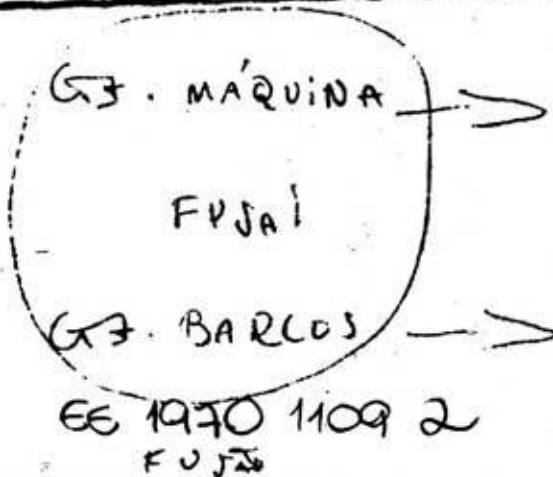 G7. MÁQUINA
FUJAÍ
G7. BARCOS
EE 1970 1109 2